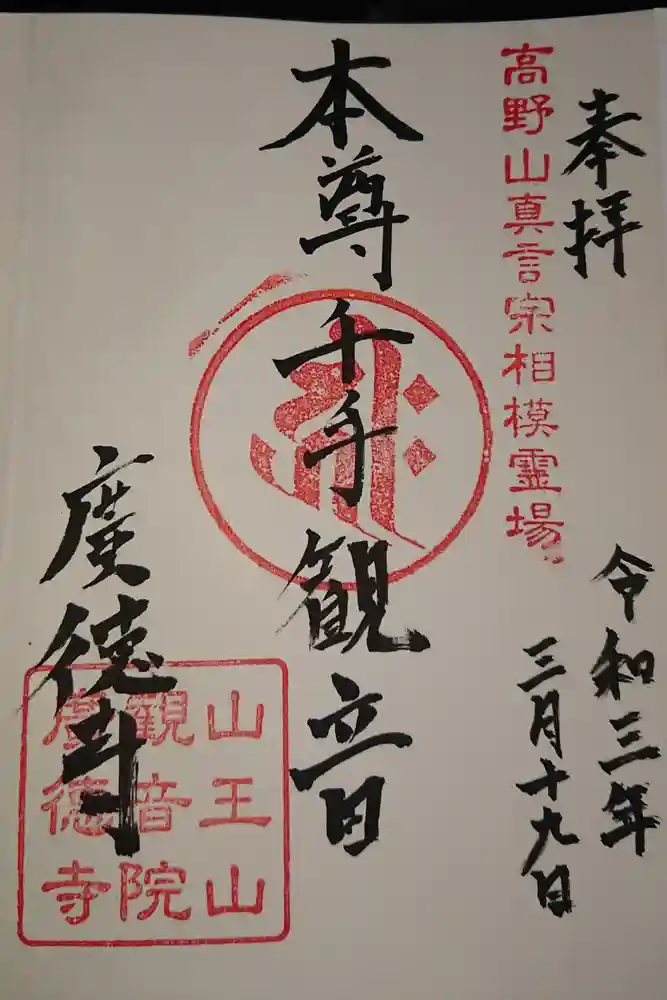 奉拝
令和三年
三月十九日
高野山真言宗相模霊場
本尊千手観音
廣徳寺
山王山
観音院
廣徳寺